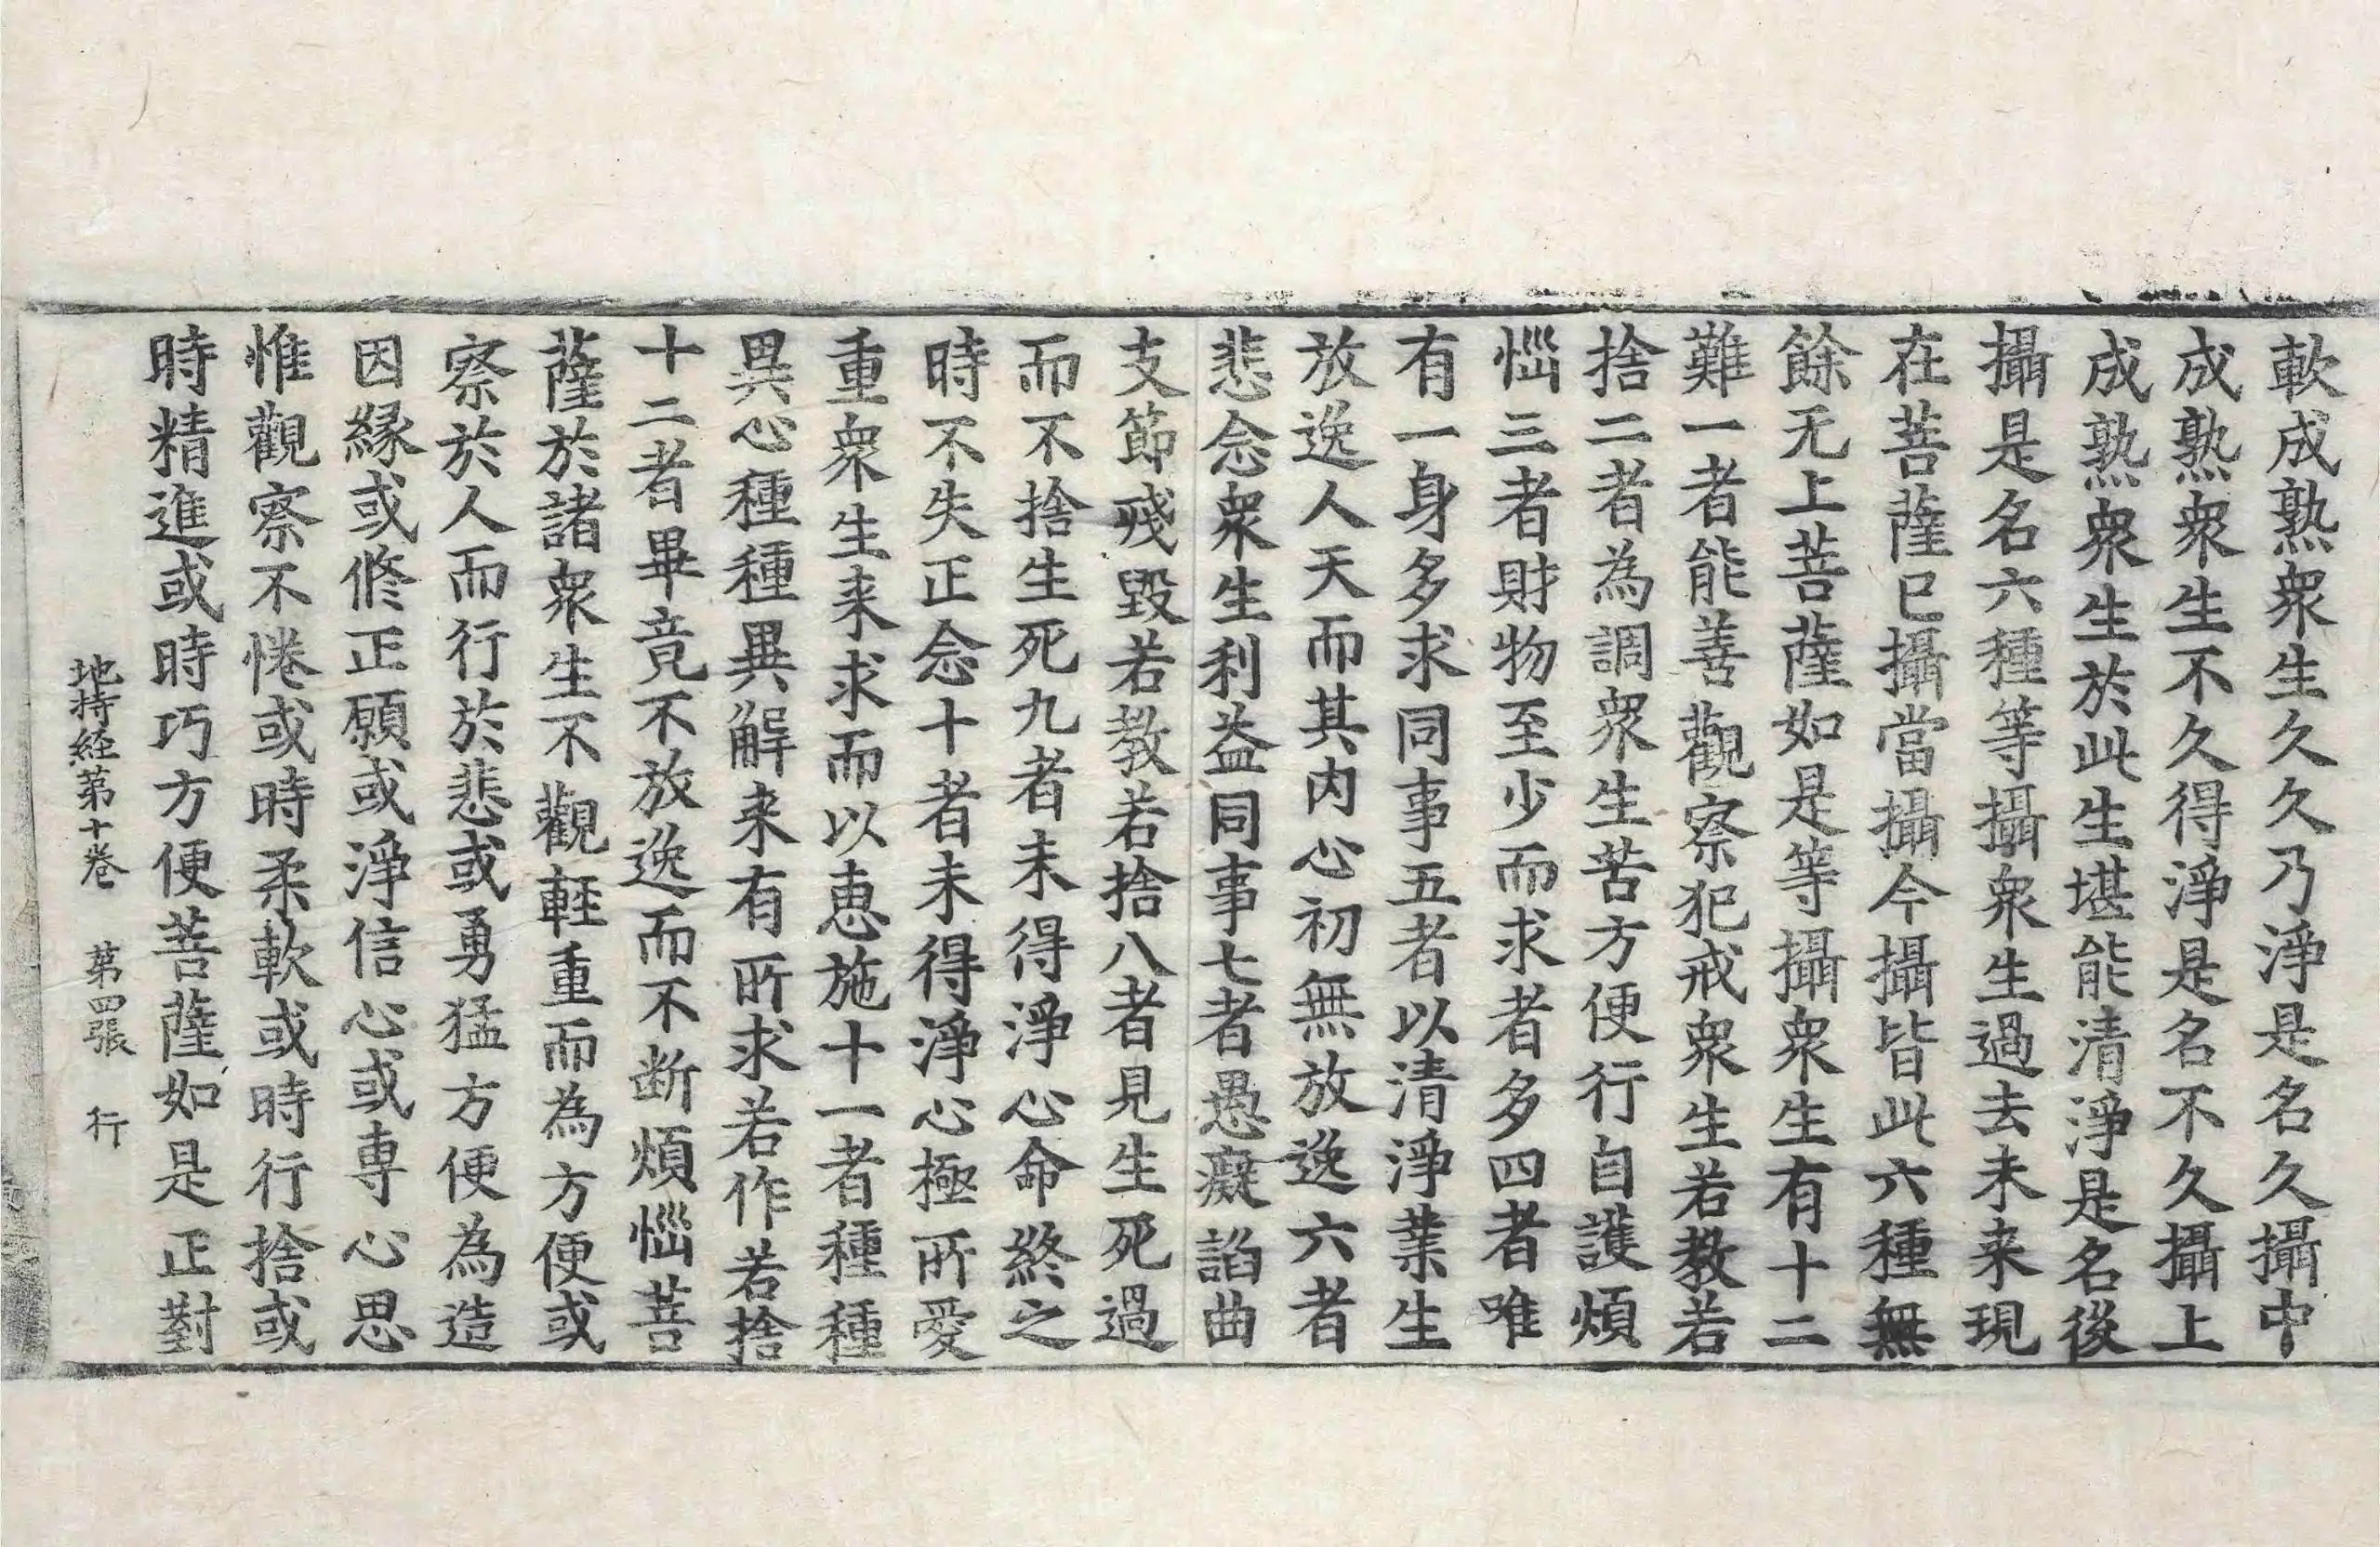 軟成熟衆生久久乃淨是名久攝中
成熟衆生不久得淨是名不久攝上
成熟衆生於此生堪能清淨是名後
攝是名六種等攝衆生過去未来現
在菩薩已攝當攝今攝皆此六種無
餘无上菩薩如是等攝衆生有十二
難一者能善觀察犯戒衆生若教若
捨二者為調衆生苦方便行自護煩
惱三者財物至少而求者多四者唯
有一身多求同事五者以清淨業生
放逸人天而其内心初無放逸六者
悲念衆生利益同事七者愚癡諂曲
支節殘毀若教若捨八者見生死過
而不捨生死九者未得淨心命終之
時不失正念十者未得淨心極所愛
重衆生来求而以恵施十一者種種
異心種種異解来有所求若作若捨
十二者畢竟不放逸而不断煩惱菩
薩於諸衆生不觀輕重而為方便或
察於人而行於悲或勇猛方便為造
因縁或修正願或淨信心或専心思
惟觀察不惓或時柔軟或時行捨或
時精進或時巧方便菩薩如是正對
地持経第十卷 第四張 行